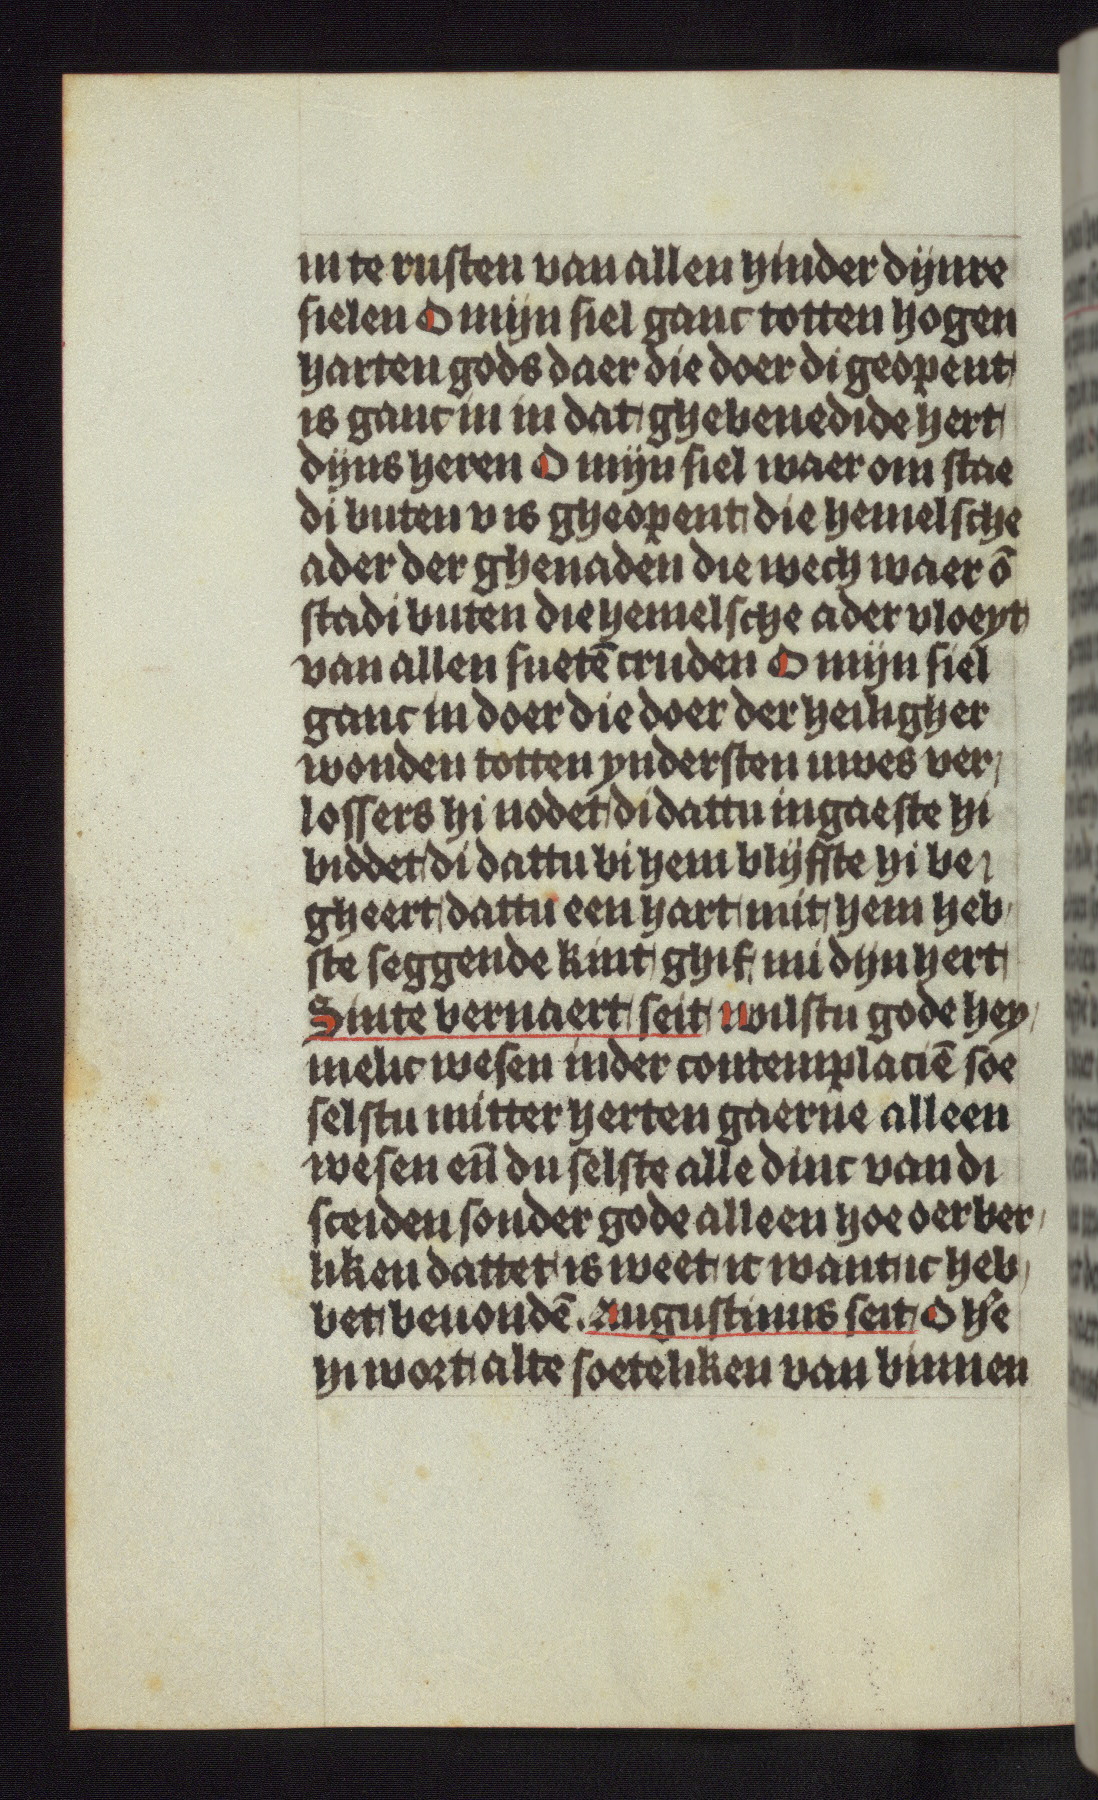 in te rusten van allen hinder dijnre
sielen O mijn siel ganc totten hogen
harten gods daer die doer di geopent
is ganc in in dat ghebenedide hert
dijns heren O mijn siel waer om stae
di buten v is gheopent die hemelsche
ader der ghenaden die wech waer ō
stadi buten die hemelsche ader vloeyt
van allen suetē cruden O mijn siel
ganc in doer die doer der heiligher
wonden totten yndersten uwes ver
lossers hi nodet di dattu ingaeste hi
biddet di dattu bi hem blijffste hi be
gheert dattu een hart mit hem heb
ste seggende kint ghif mi dijn hert
Sinte bernaert seit wilstu gode hey
melic wesen inder contemplaciē soe
selstu mitter herten gaerne alleen
wesen en̄ du selste alle dinc van di
sceiden sonder gode alleen hoe oerber
liken dattet is weet ic want ic heb
bet beuondē. Augustinus seit O hʼe
hi wort alte soeteliken van binnen